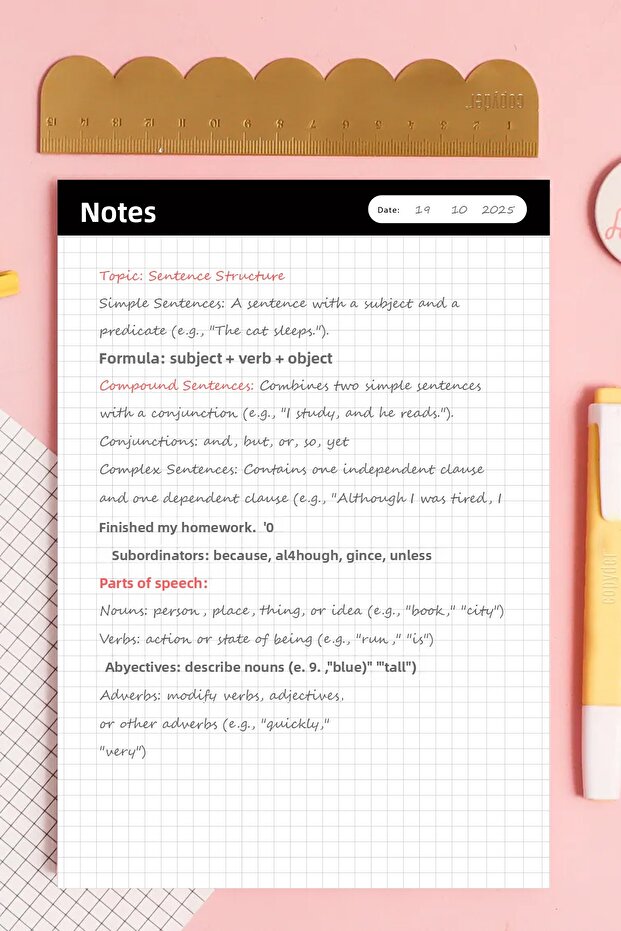 copyder
15 14 13 12 11 10 9 8 7 6 5 4 3 2 1
Notes
Date: 19 10 2025
Topic: Sentence Structure
Simple Sentences: A sentence with a subject and a
predicate (e.g., "The cat sleeps.").
Formula: subject + verb + object
Compound Sentences: Combines two simple sentences
with a conjunction (e.g., "I study, and he reads.").
Conjunctions: and, but, or, so, yet
Complex Sentences: Contains one independent clause
and one dependent clause (e.g., "Although I was tired, I
Finished my homework. '0
Subordinators: because, al4hough, gince, unless
Parts of speech:
Nouns: person, place, thing, or idea (e.g., "book," "city")
Verbs: action or state of being (e.g., "run," "is")
Abyectives: describe nouns (e. 9. ,"blue)" '"tall")
Adverbs: modify verbs, adjectives,
or other adverbs (e.g., "quickly,"
"very")
copyder